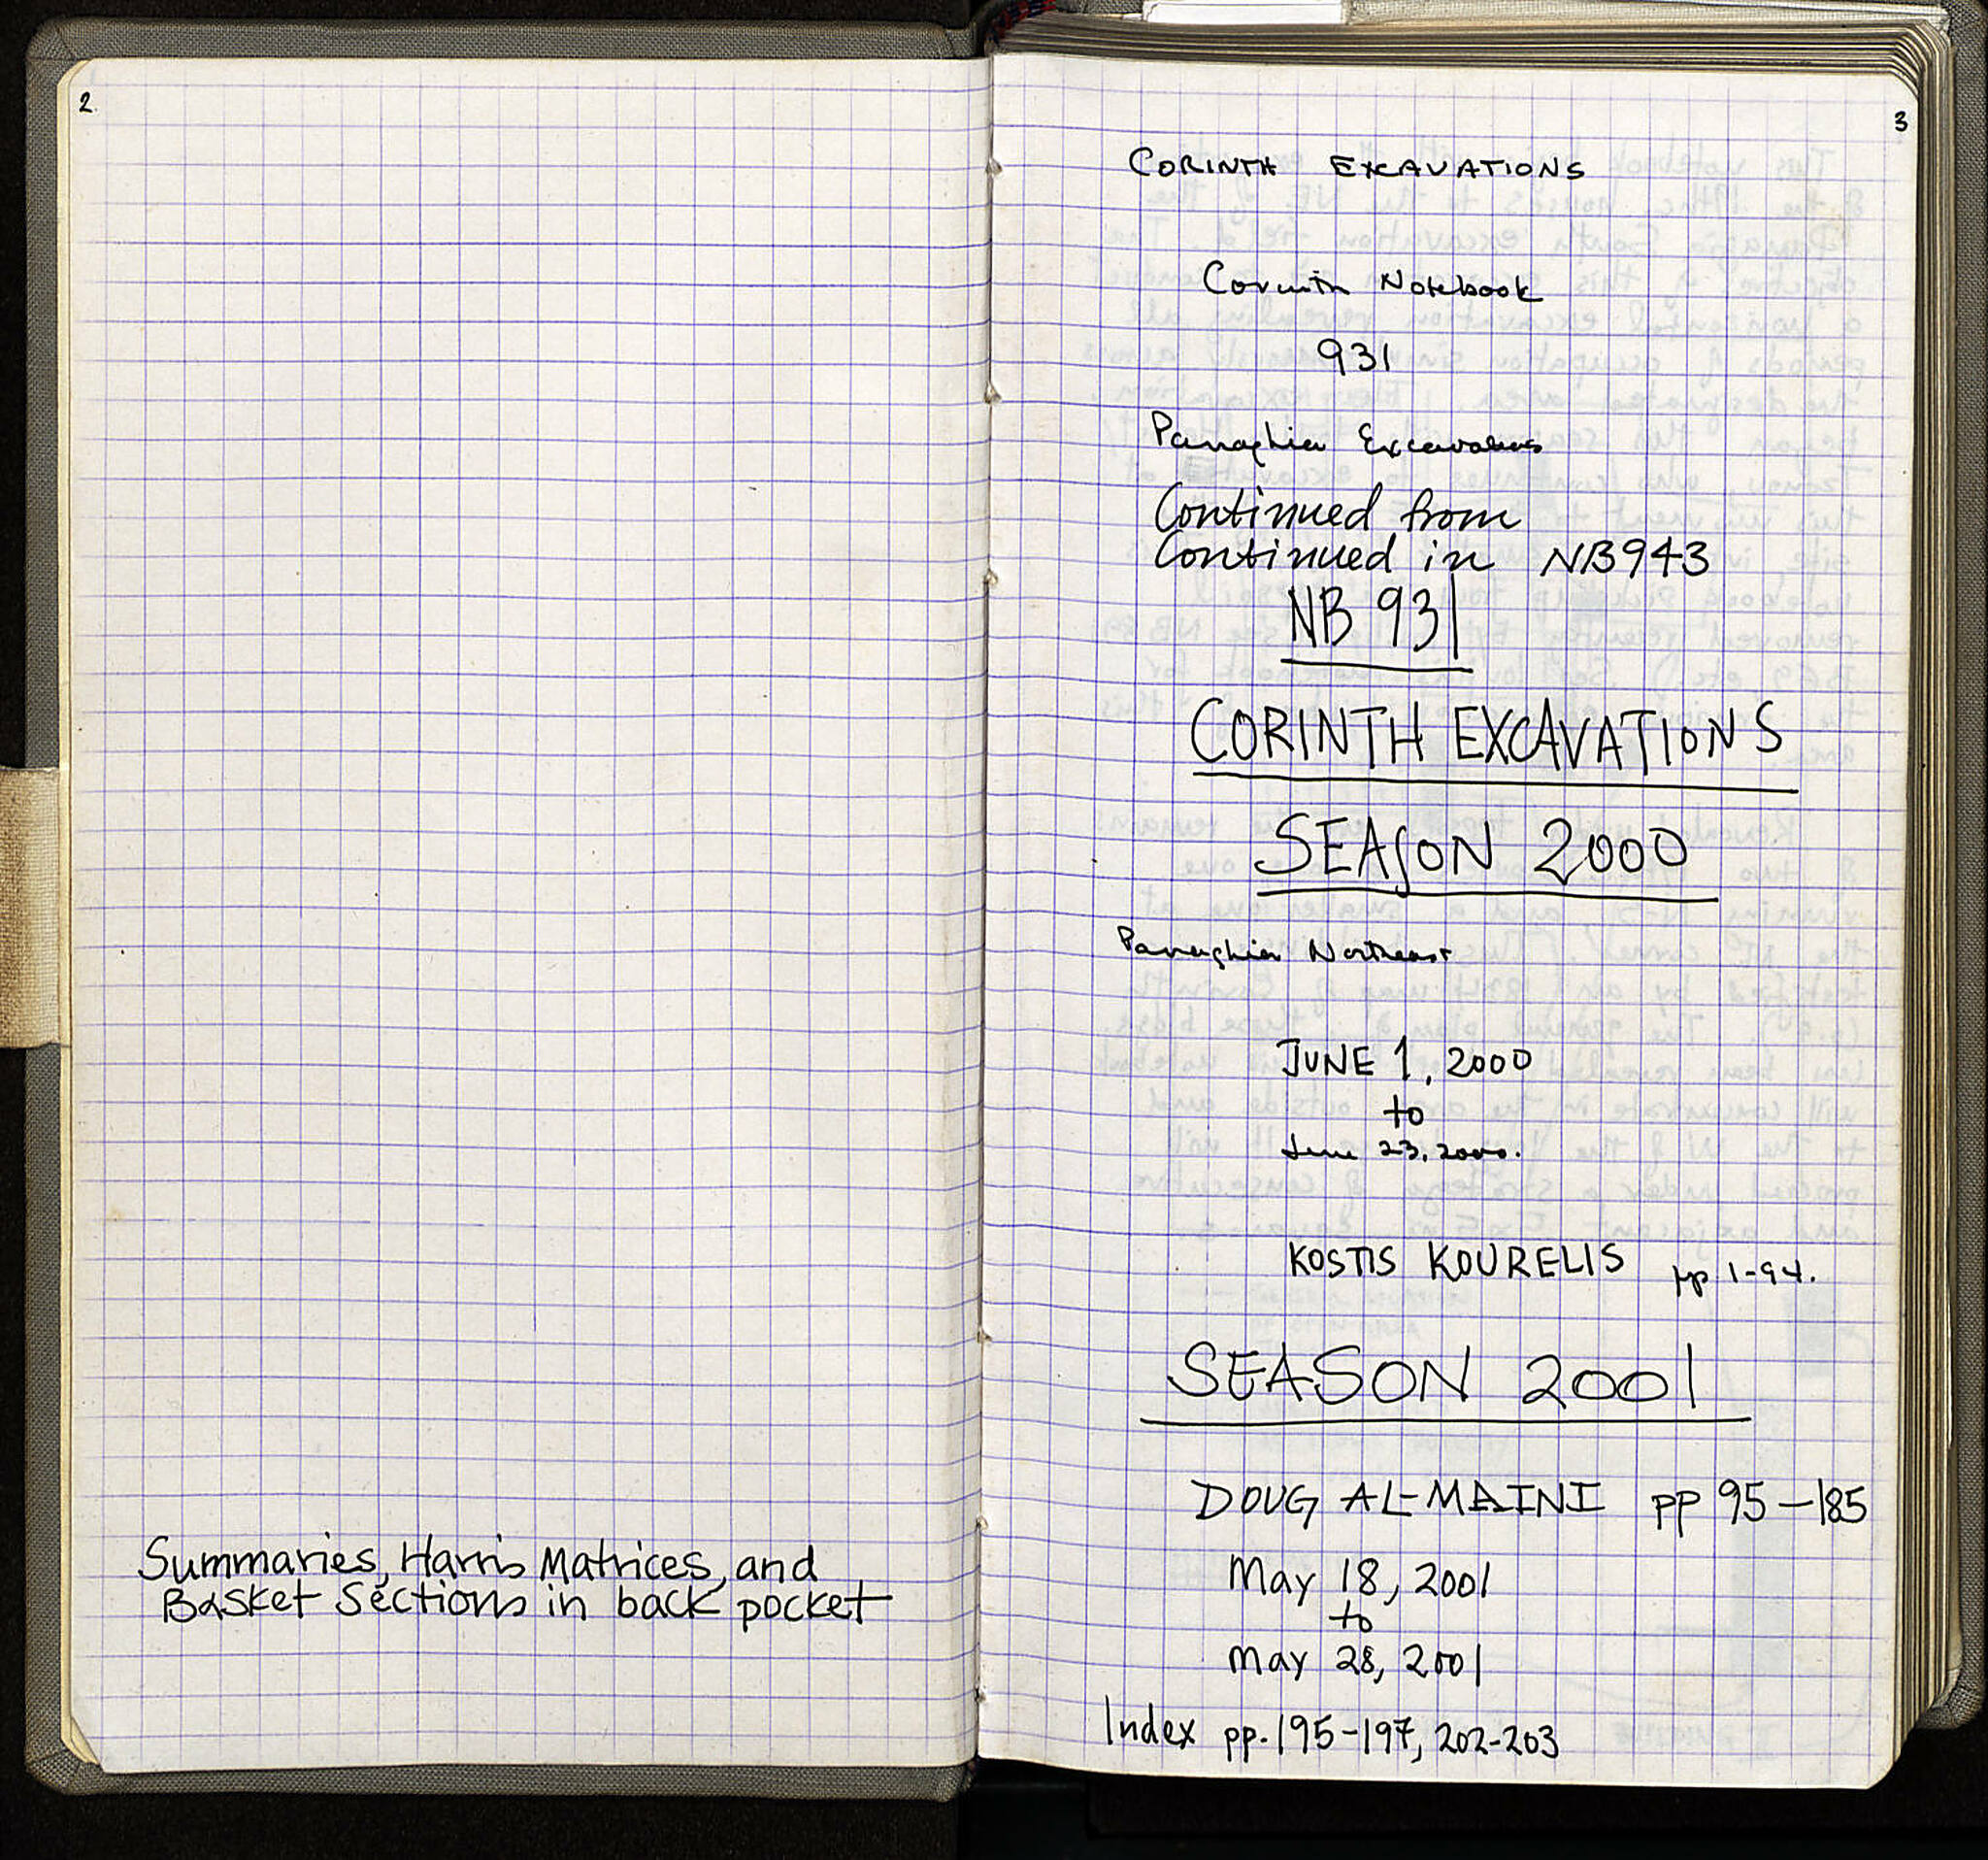 2.
Summaries, Harris Matrices, and
Basket Sections in back pocket
3
CORINTH EXCAVATIONS
Corinth Notebook
931
Panaghia Excavations
Continued from
Continued in NB943
NB 931
CORINTH EXCAVATIONS
SEASON 2000
Panaghia Northeast
JUNE 1, 2000
to
June 23, 2000.
KOSTIS KOURELIS pp 1-94.
SEASON 2001
DOUG AL-MAINI pp 95-185
May 18, 2001
to
May 28, 2001
Index pp. 195-197, 202-203